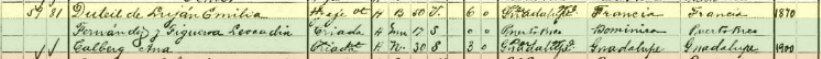 59 81 Duteil de Luján Emilia Jefe ot H B 50 S. 6 0 Guadalupe Francia Francia 1870
Fernández y Figueroa Leocadia Criada H 17 S 0 Puerto Rico Dominica Puerto Rico
Calberg Ana Criada H N. 30 S 3 0 Guadalupe Guadalupe Guadalupe 1900